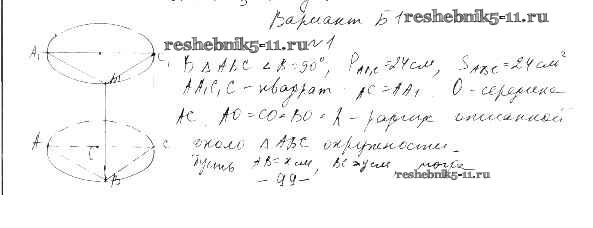 Вариант Б1
reshebnik5-11.ru
reshebnik5-11.ru
№1
A₁
C₁
B₁
В △ABC ∠B=90°, P_ABC=24см, S_ABC=24см²
AA₁C₁C - квадрат AC=AA₁. O - середина
AC. AO=CO=BO=R - радиус описанной
A
C
B
около △ABC окружности.
Пусть AB=x см, BC=y см, тогда
reshebnik5-11.ru
- 99 -